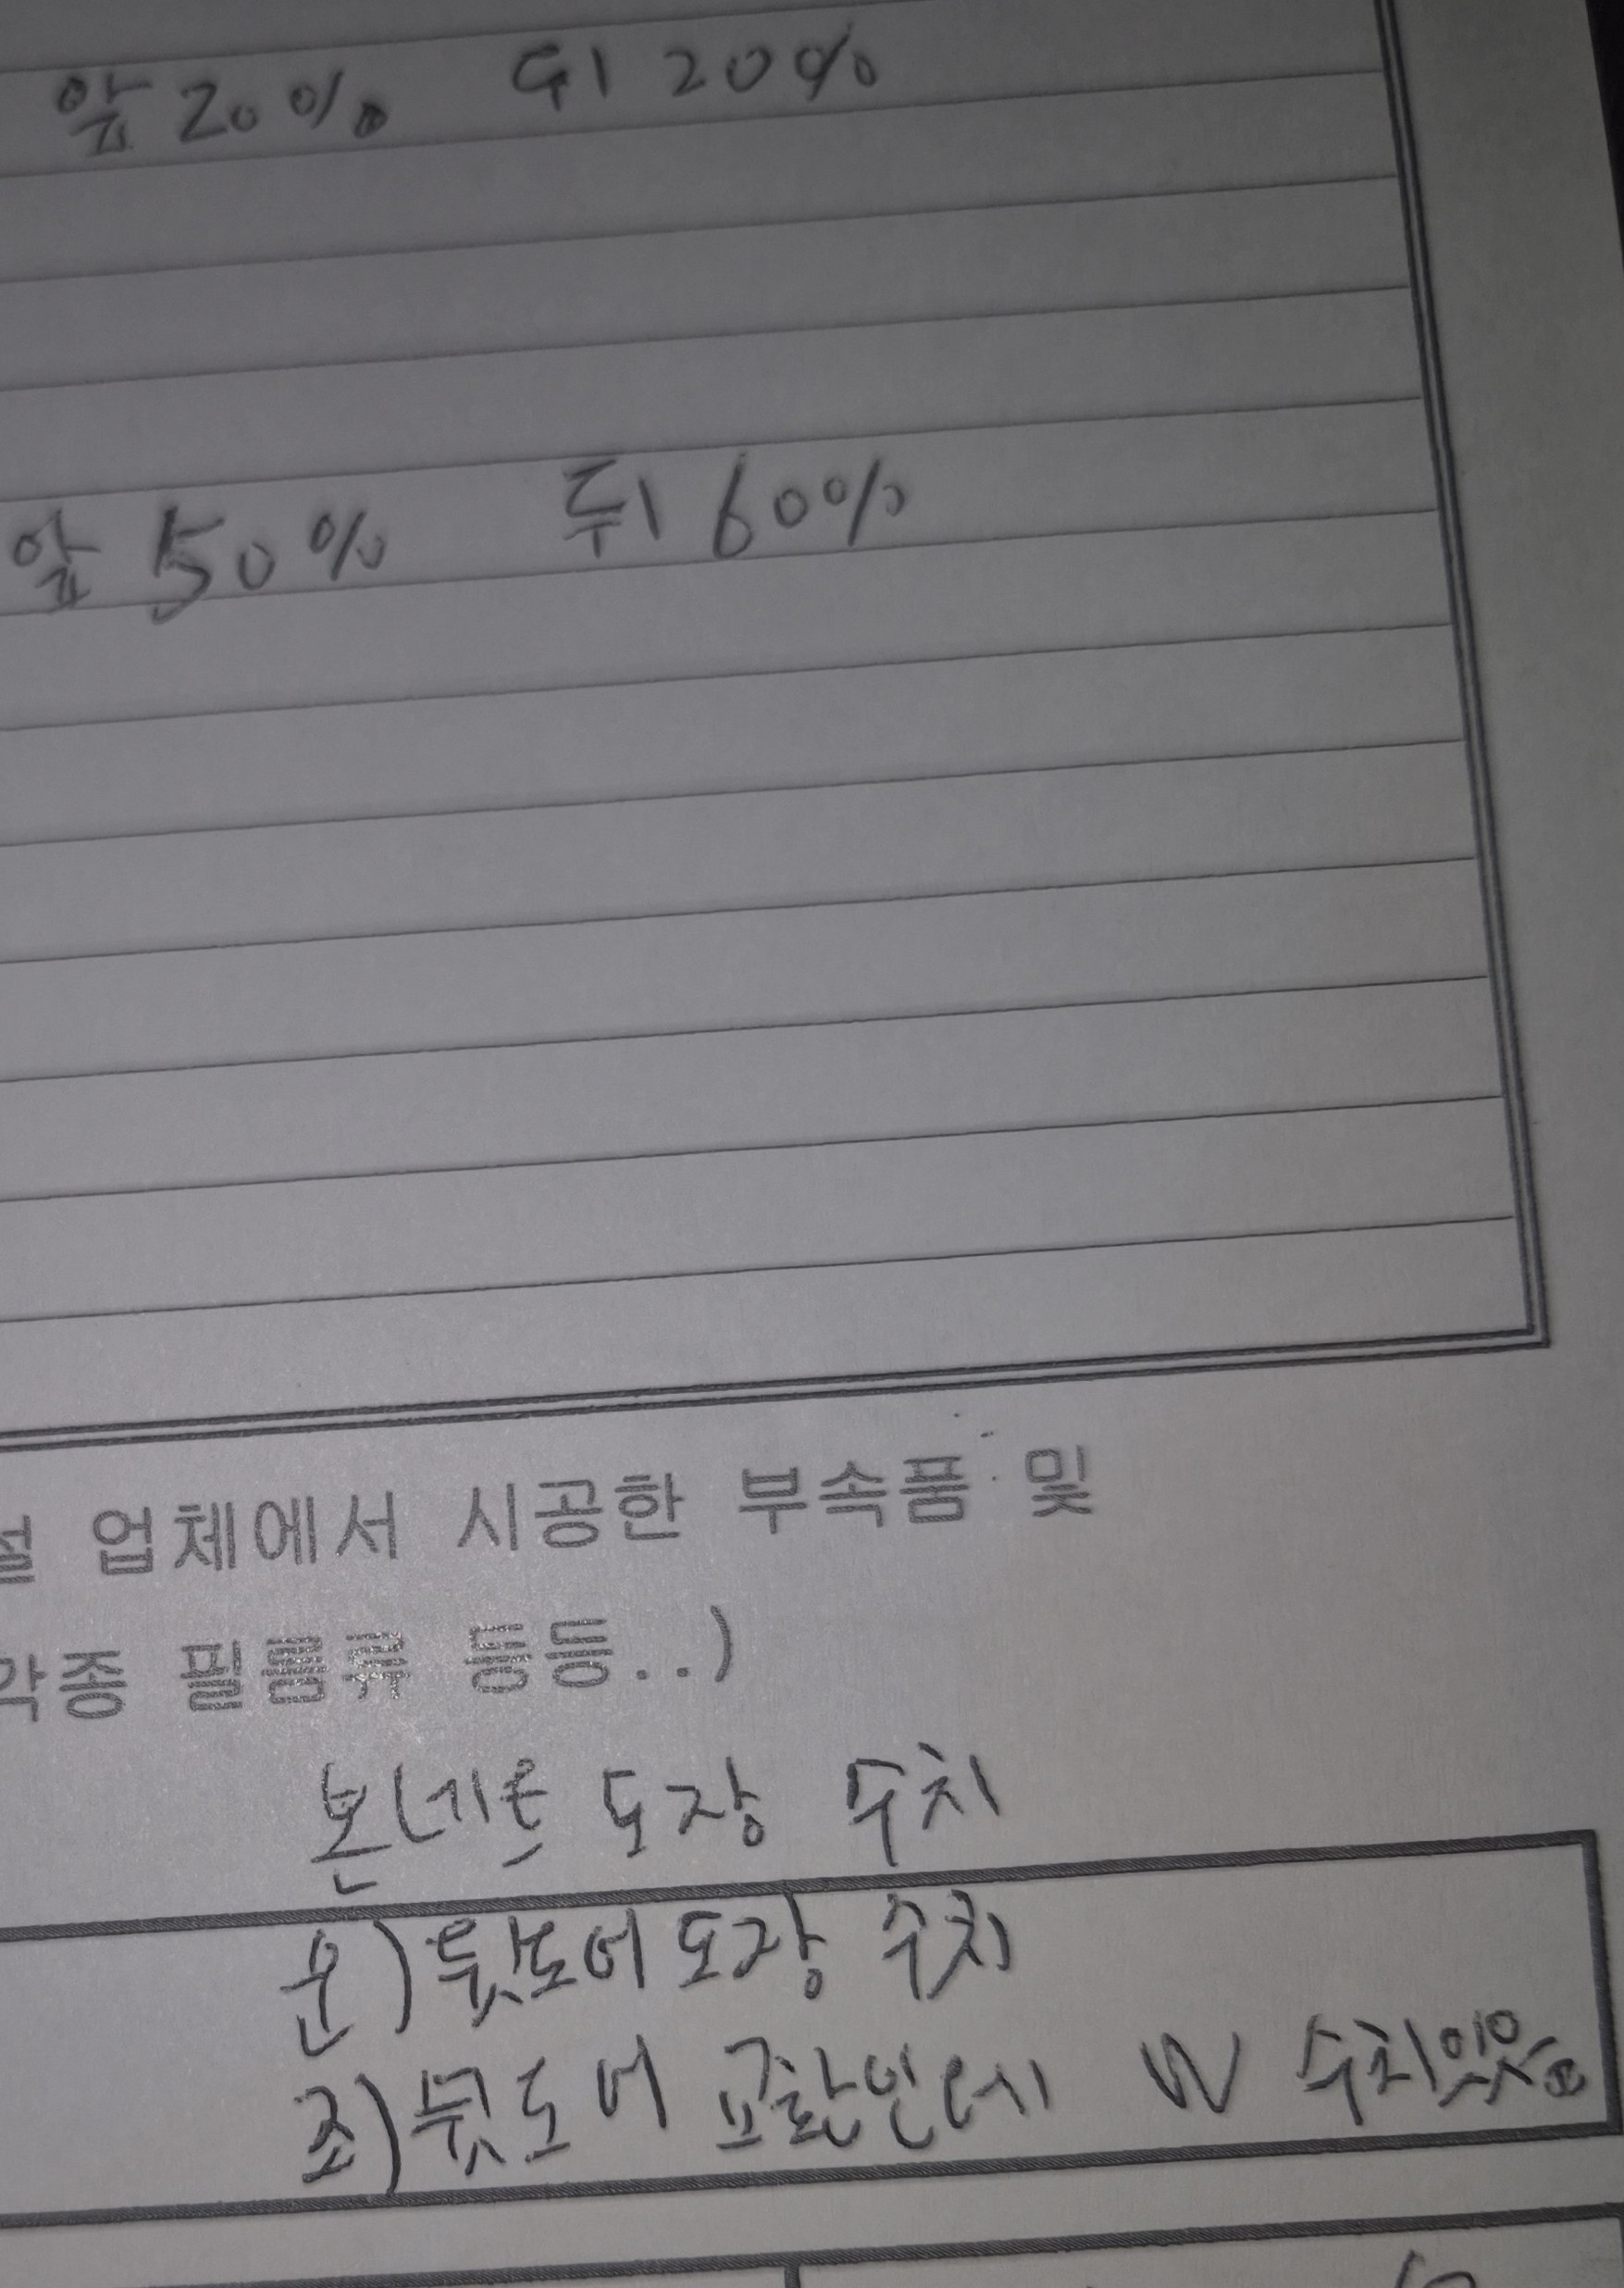 앞 20% 뒤 20%
앞 50% 뒤 60%
설 업체에서 시공한 부속품 및
각종 필름류 등등..)
본네트 도장 수치
운) 뒷도어 도장 수치
조) 뒷도어 교환인데 W 수치있음